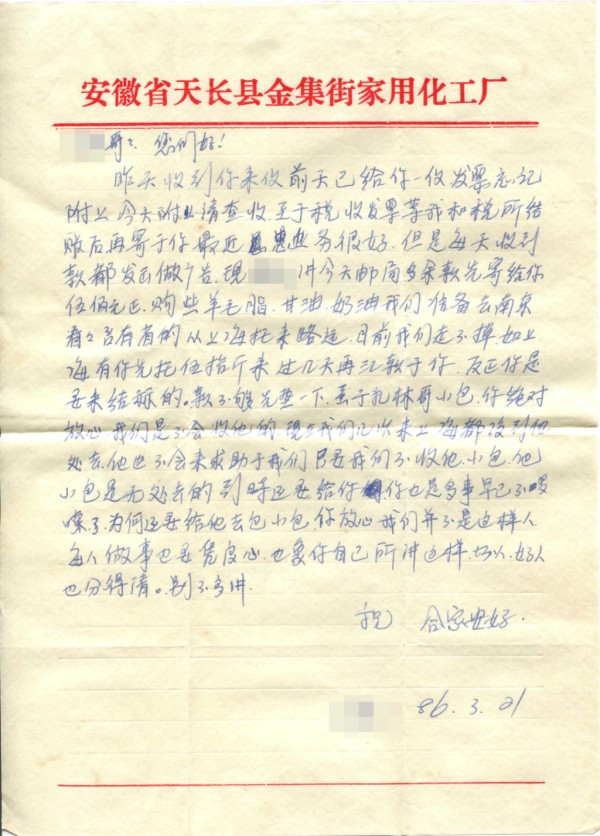 安徽省天长县金集街家用化工厂
哥々、您们好!
昨天收到你来信 前天已给你一信 发票忘记
附上 今天附上请查收.至于税收发票等我和税所结
账后再寄于你 最近 业务很好.但是每天收到
款都发出做广告.现 讲今天邮局多余款先寄给你
伍佰元正.购些羊毛脂.甘油.奶油我们准备去南京
看々 有的从上海托来路远.目前我们走不掉.如上
海有你先托伍拾斤来 过几天再汇款于你.反正你是
要来结账的。款不够先垫一下.至于 林哥小包.你绝对
放心.我们是不会收他的.现在我们几次来上海都没到他
处去.他也不会来求助于我们 只要我们不收他.小包.他
小包是无处去的 到时还要给你 你也是多事早已不
了.为何还要给他去包小包 你放心 我们并不是这样人
每人做事也要凭良心.也要你自己所讲这样.坏人.好人
也分得清。别不多讲.
祝 合家安好.
86.3.21